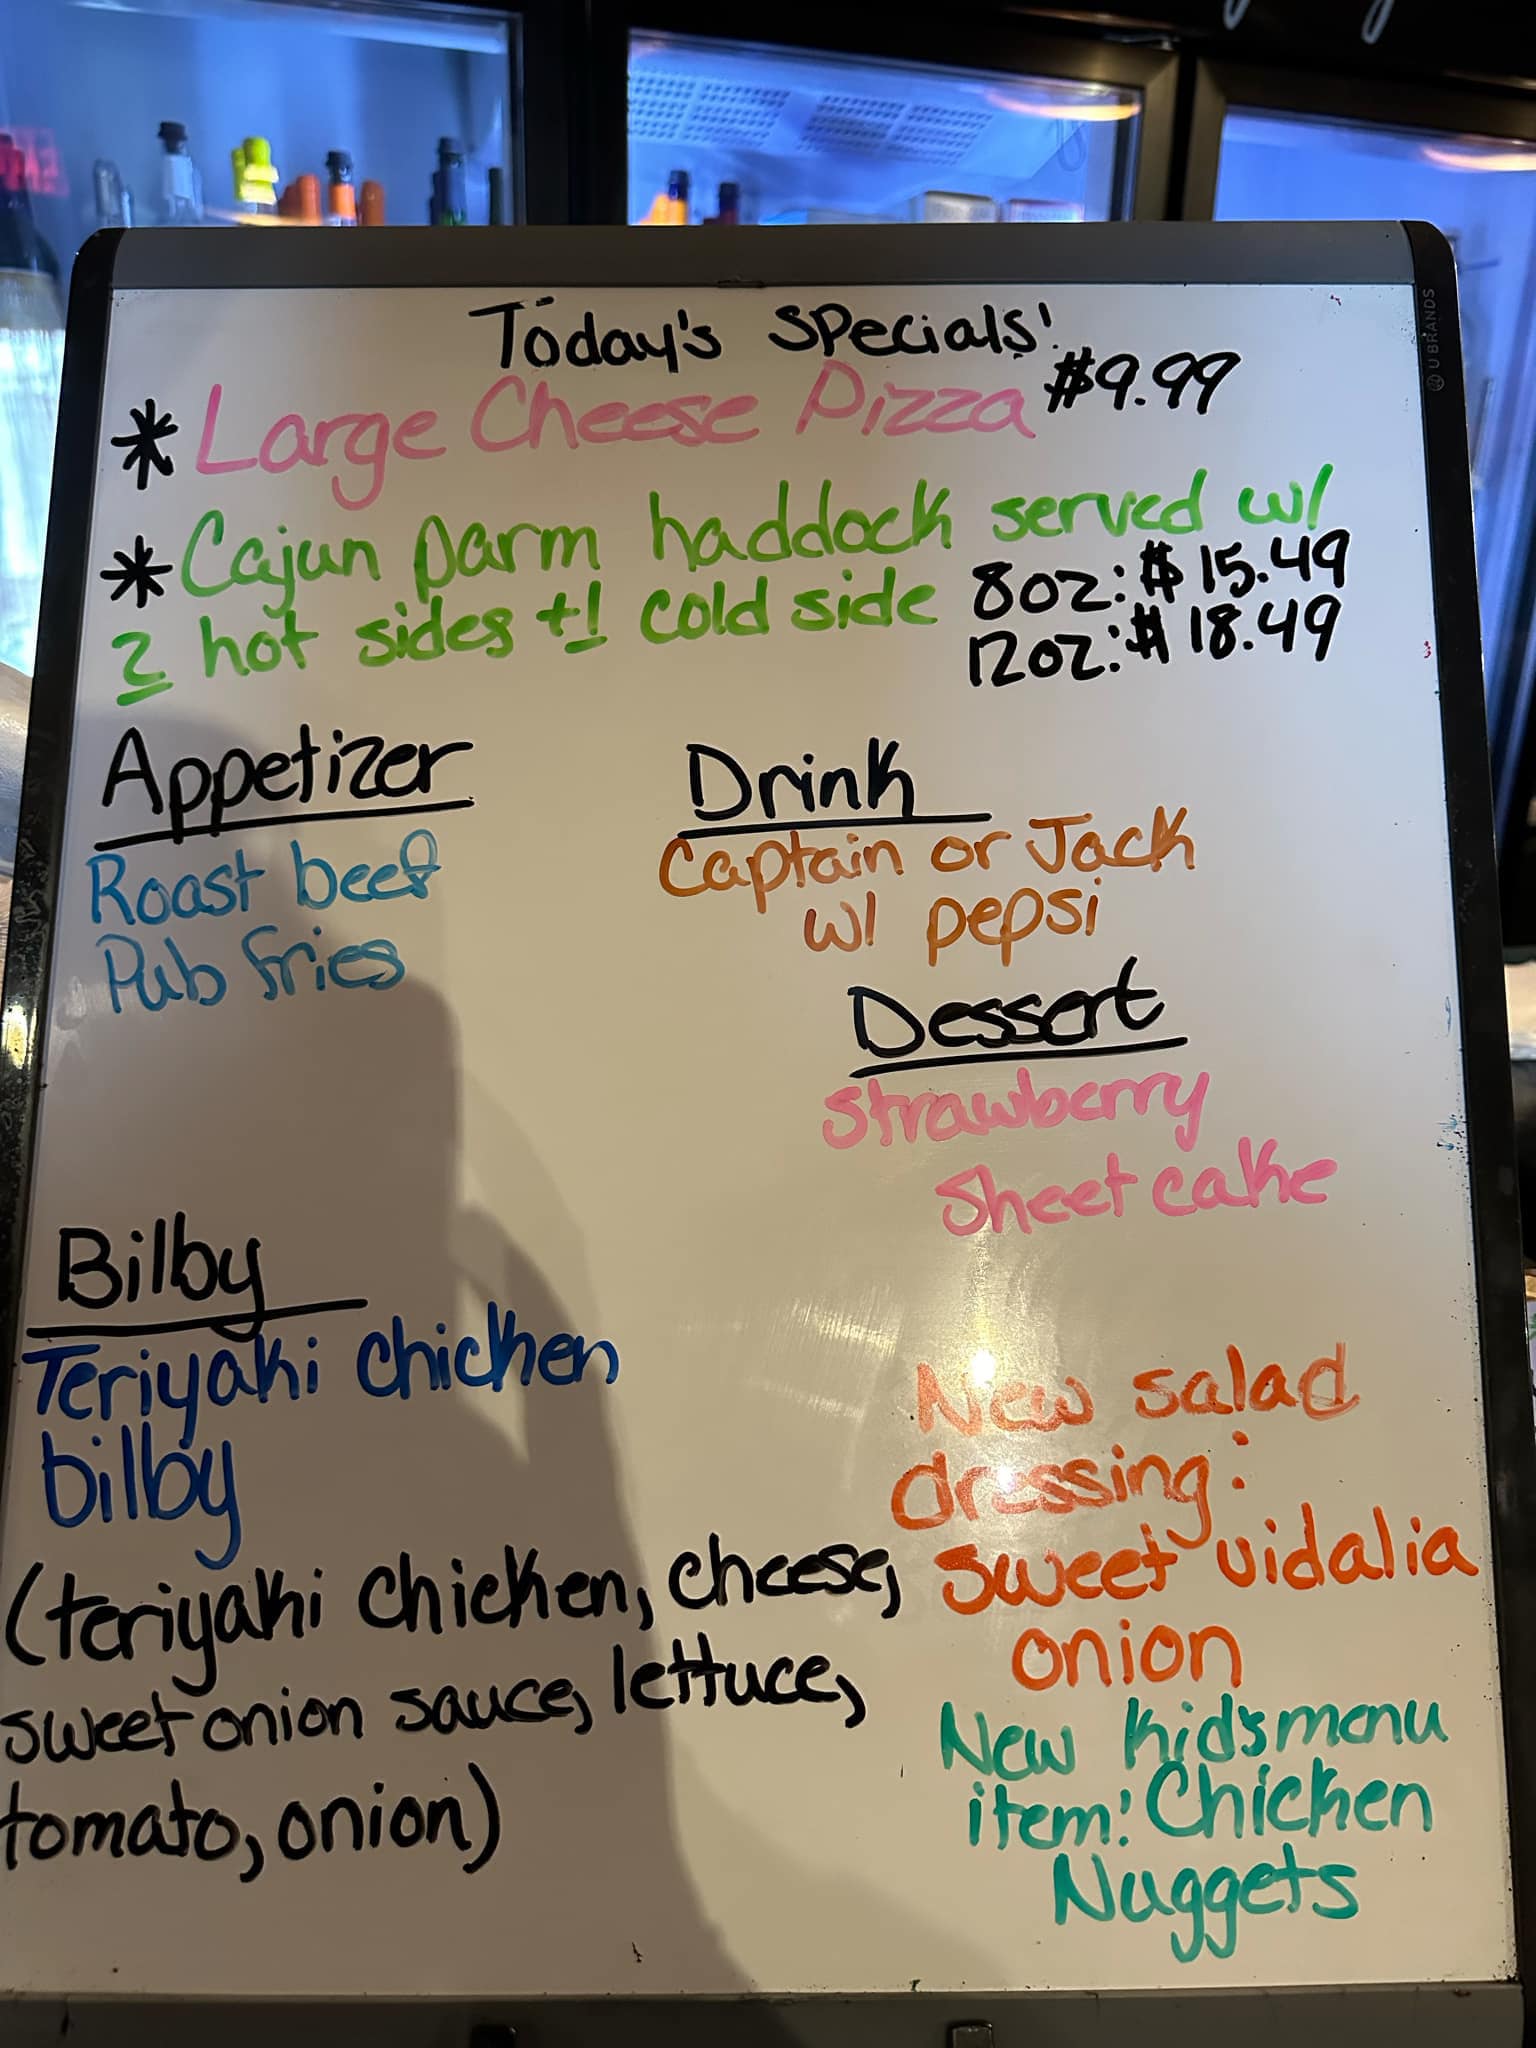 Today's Specials!
* Large Cheese Pizza $9.99
* Cajun parm haddock served w/
2 hot sides +1 cold side 8oz: $15.49
12oz: $18.49
Appetizer
Roast beef
Pub fries
Drink
Captain or Jack
w/ pepsi
Dessert
Strawberry
Sheet cake
Bilby
Teriyaki chicken
bilby
(teriyaki chicken, cheese,
sweet onion sauce, lettuce,
tomato, onion)
New salad
dressing:
sweet vidalia
onion
New kid's menu
item: Chicken
Nuggets
U BRANDS